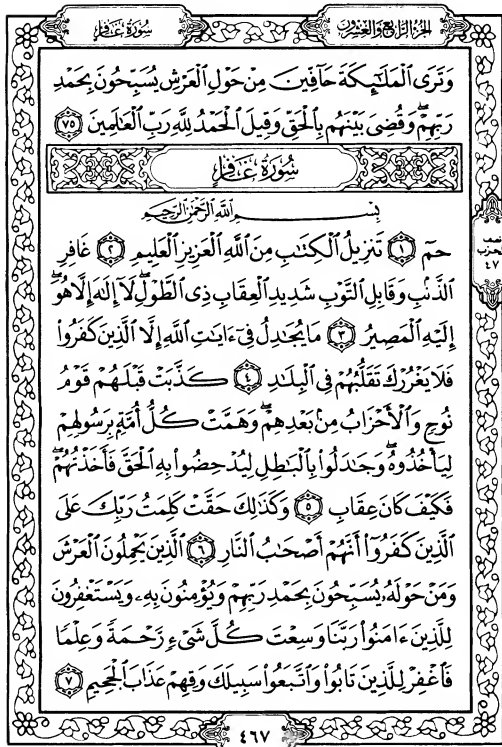 سُورَةُ غَافِرٍ
الجُزْءُ الرَّابِعُ وَالعِشْرُونَ
وَتَرَى الْمَلَٰٓئِكَةَ حَآفِّينَ مِنْ حَوْلِ الْعَرْشِ يُسَبِّحُونَ بِحَمْدِ
رَبِّهِمْ ۖ وَقُضِىَ بَيْنَهُم بِالْحَقِّ وَقِيلَ الْحَمْدُ لِلَّهِ رَبِّ الْعَٰلَمِينَ ٧٥
سُورَةُ غَافِرٍ
بِسْمِ اللَّهِ الرَّحْمَٰنِ الرَّحِيمِ
حمٓ ١ تَنزِيلُ الْكِتَٰبِ مِنَ اللَّهِ الْعَزِيزِ الْعَلِيمِ ٢ غَافِرِ
الذَّنۢبِ وَقَابِلِ التَّوْبِ شَدِيدِ الْعِقَابِ ذِى الطَّوْلِ ۖ لَآ إِلَٰهَ إِلَّا هُوَ ۖ
إِلَيْهِ الْمَصِيرُ ٣ مَا يُجَٰدِلُ فِىٓ ءَايَٰتِ اللَّهِ إِلَّا الَّذِينَ كَفَرُوا۟
فَلَا يَغْرُرْكَ تَقَلُّبُهُمْ فِى الْبِلَٰدِ ٤ كَذَّبَتْ قَبْلَهُمْ قَوْمُ
نُوحٍ وَالْأَحْزَابُ مِنۢ بَعْدِهِمْ ۖ وَهَمَّتْ كُلُّ أُمَّةٍۭ بِرَسُولِهِمْ
لِيَأْخُذُوهُ ۖ وَجَٰدَلُوا۟ بِالْبَٰطِلِ لِيُدْحِضُوا۟ بِهِ الْحَقَّ فَأَخَذْتُهُمْ ۖ
فَكَيْفَ كَانَ عِقَابِ ٥ وَكَذَٰلِكَ حَقَّتْ كَلِمَتُ رَبِّكَ عَلَى
الَّذِينَ كَفَرُوٓا۟ أَنَّهُمْ أَصْحَٰبُ النَّارِ ٦ الَّذِينَ يَحْمِلُونَ الْعَرْشَ
وَمَنْ حَوْلَهُۥ يُسَبِّحُونَ بِحَمْدِ رَبِّهِمْ وَيُؤْمِنُونَ بِهِۦ وَيَسْتَغْفِرُونَ
لِلَّذِينَ ءَامَنُوا۟ رَبَّنَا وَسِعْتَ كُلَّ شَىْءٍ رَّحْمَةً وَعِلْمًا
فَاغْفِرْ لِلَّذِينَ تَابُوا۟ وَاتَّبَعُوا۟ سَبِيلَكَ وَقِهِمْ عَذَابَ الْجَحِيمِ ٧
نصف
الحزب
٤٧
٤٦٧